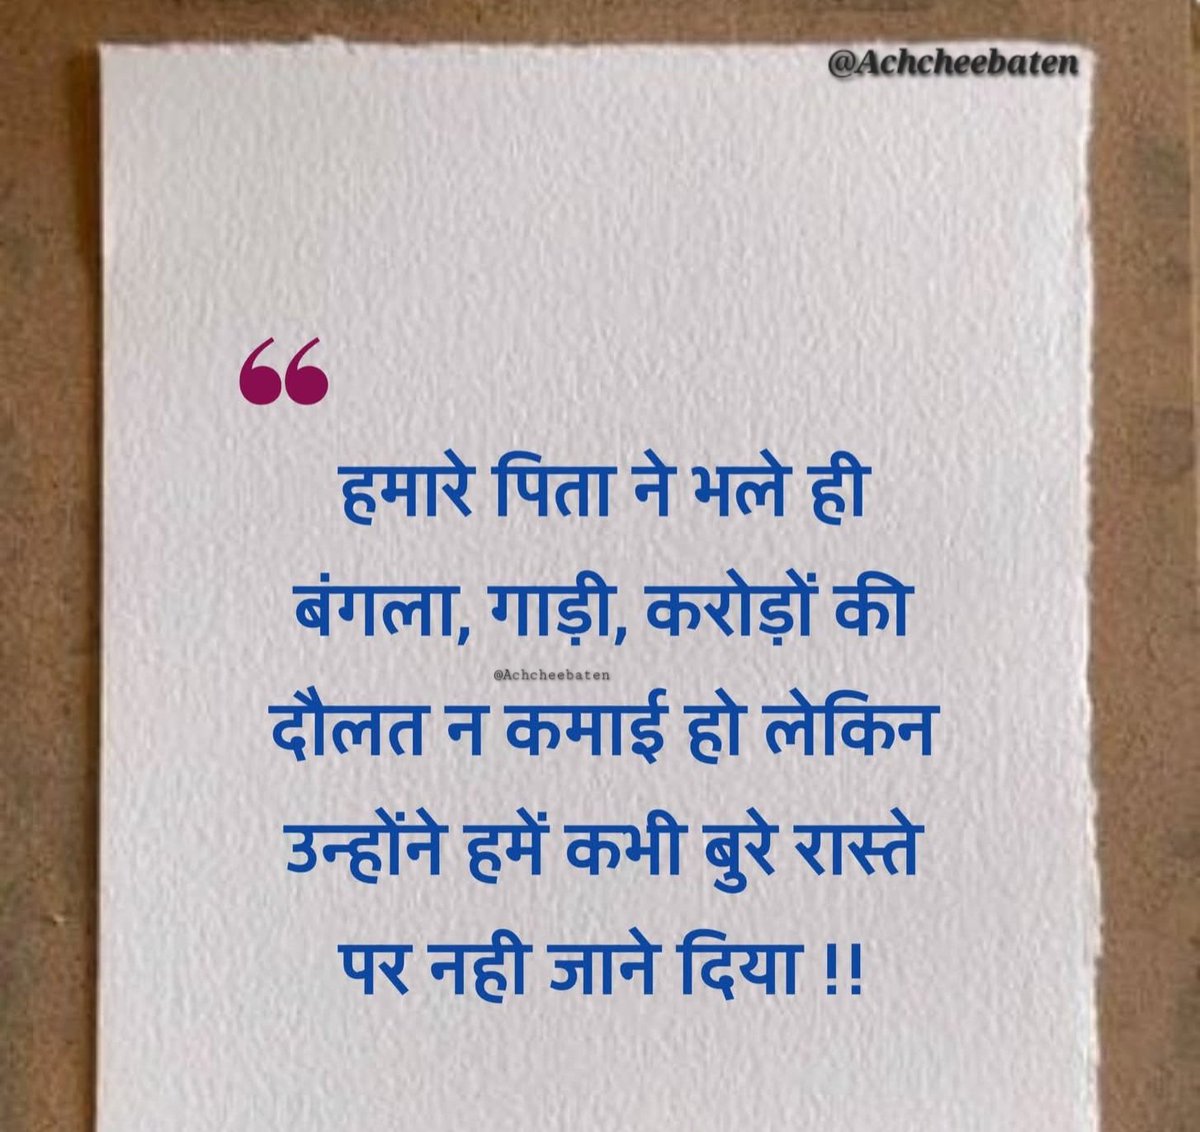 @Achcheebaten
❝
हमारे पिता ने भले ही
बंगला, गाड़ी, करोड़ों की
@Achcheebaten
दौलत न कमाई हो लेकिन
उन्होंने हमें कभी बुरे रास्ते
पर नही जाने दिया !!